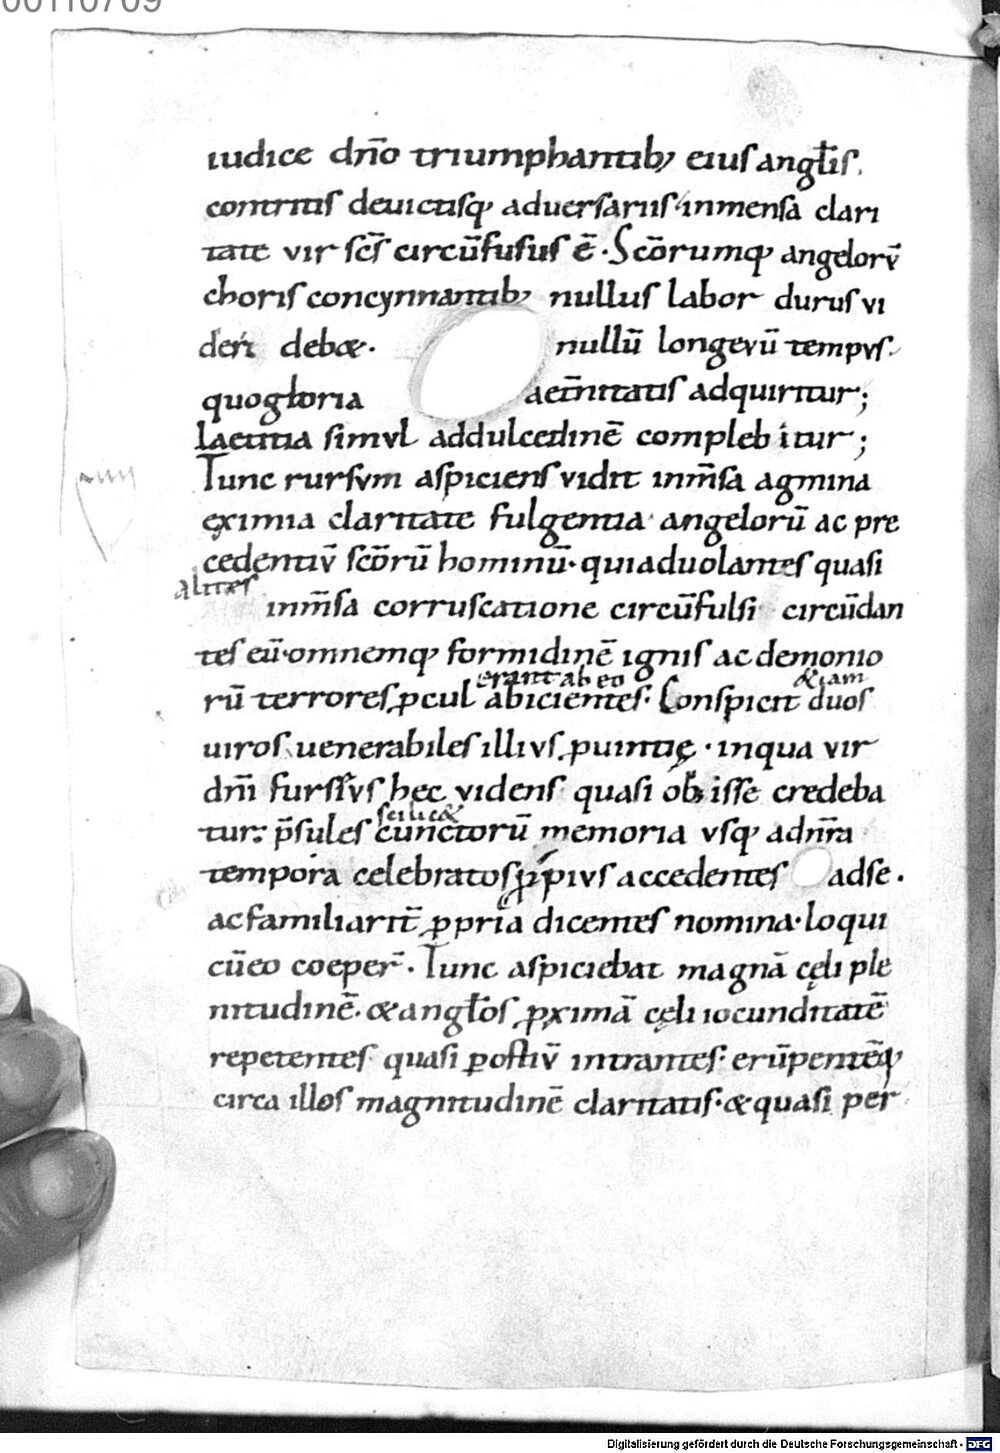 00110709
iudice dn̄o triumphantib; eius angłis.
contritis deuictisq; aduersariis inmensa clari
tate vir sc̄s circūfusus ē. Sc̄orumq; angelorū
choris concynnantib; nullus labor durus vi
deri debet. nullū longevū tempus.
quo gloria aet̄nitatis adquiritur;
Laetitia simul addulcedinē complebitur;
Tunc rursum aspiciens vidit inm̄sa agmina
eximia claritate fulgentia angelorū ac pre
cedentiū sc̄orū hominū. quiaduolantes quasi
alites
inm̄sa corruscatione circūfulsi circūdan
tes eū. omnemq; formidinē ignis ac demonio
erant ab eo &iam
rū terrores ꝓcul abicientes. Conspicit duos
uiros uenerabiles illius ꝓuintię. inqua vir
dn̄i furssus hec videns quasi ob isse credeba
scilic&
tur. p̄sules cunctorū memoria usq; adn̄ra
tempora celebratos ꝓpius accedentes adse.
ac familiarit̄ ꝓpria dicentes nomina. loqui
cūeo coeper̄. Tunc aspiciebat magnā cęli ple
nitudinē. & angłos ꝓximā cęli iocunditatē
repetentes quasi ꝑostiū intrantes. erūpentēq;
circa illos magnitudinē claritatis. & quasi per
Digitalisierung gefördert durch die Deutsche Forschungsgemeinschaft - DFG